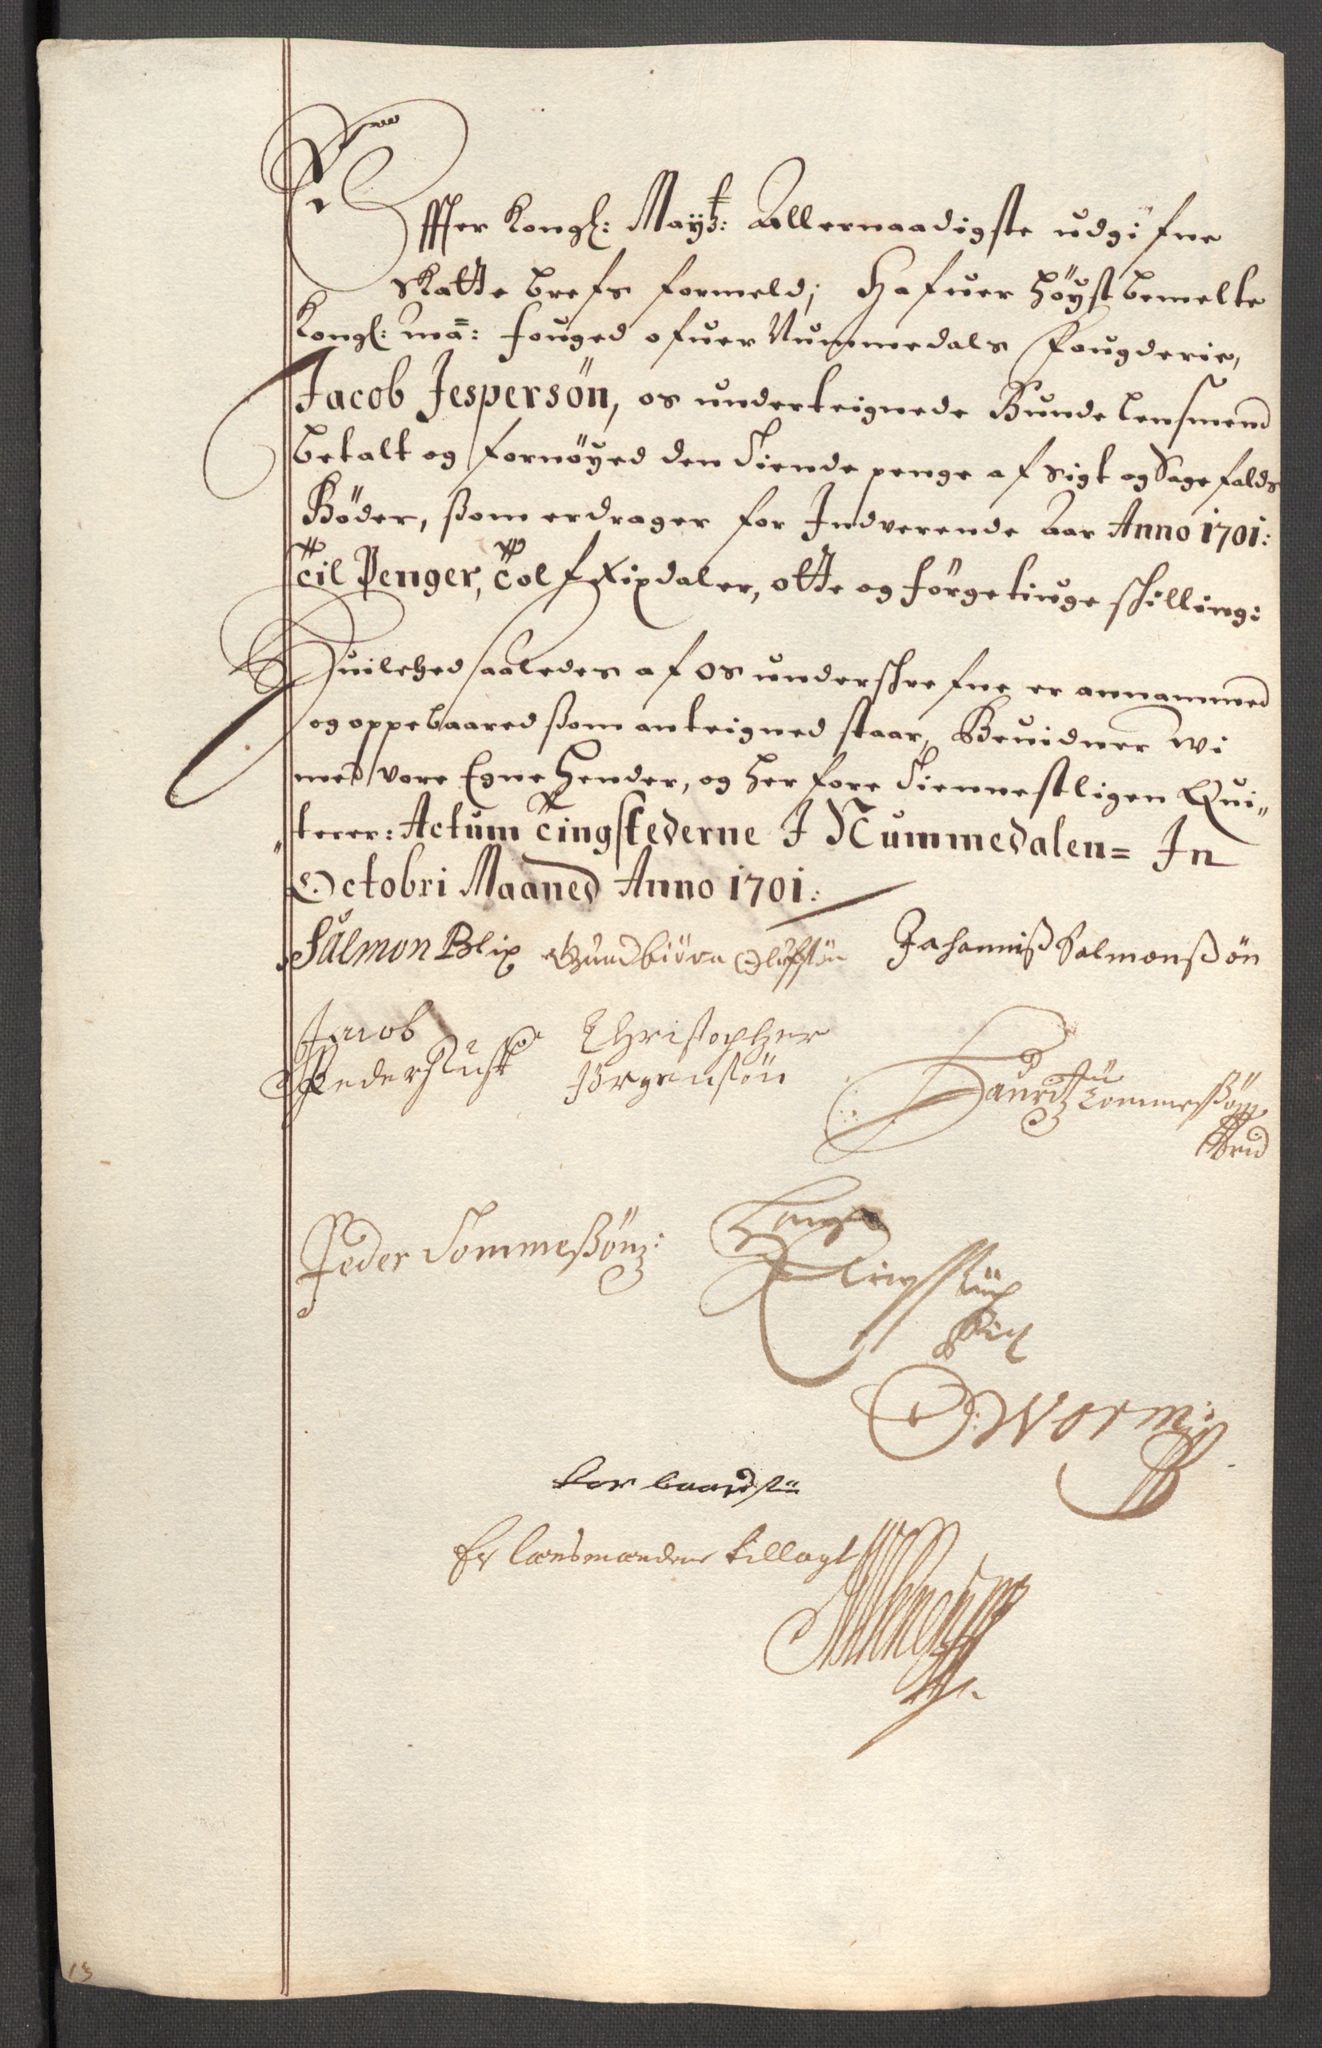 Effter Kongl: Maytz: Allernaadigste udgifne
Skatte brefs formeld; Hafuer höyst bemelte
Kongl: Ma: fouged ofuer Nummedals Fougderie,
Jacob Jespersön, os underteignede Bunde Lensmend
betalt og fornöyed den Tiende penge af Sigt og Sagefalds
Böder, ßom erdrager for Indverende Aar Anno 1701:
Til Penger, Tolf Rixdaler, otte og förgetiuge shilling:
Huilched saaledes af os undershrefne er annammed
og oppebaared ßom anteigned staar, Bevidner wi
med vore Egne Hender, og her fore Tiennestligen Qui„
„terer: Actum Tingstederne I Nummedalen = In
Octobri Maaned Anno 1701:
Salmon Blix Gundbiörn Olufsön Johanniß Salmonßön
Jacob Christopher
Pedersen Jörgensön
Lauritz Tommesßön
Peder Tommeßön:
Worm:
for baardsön
Er lænsmændene tillagt
13